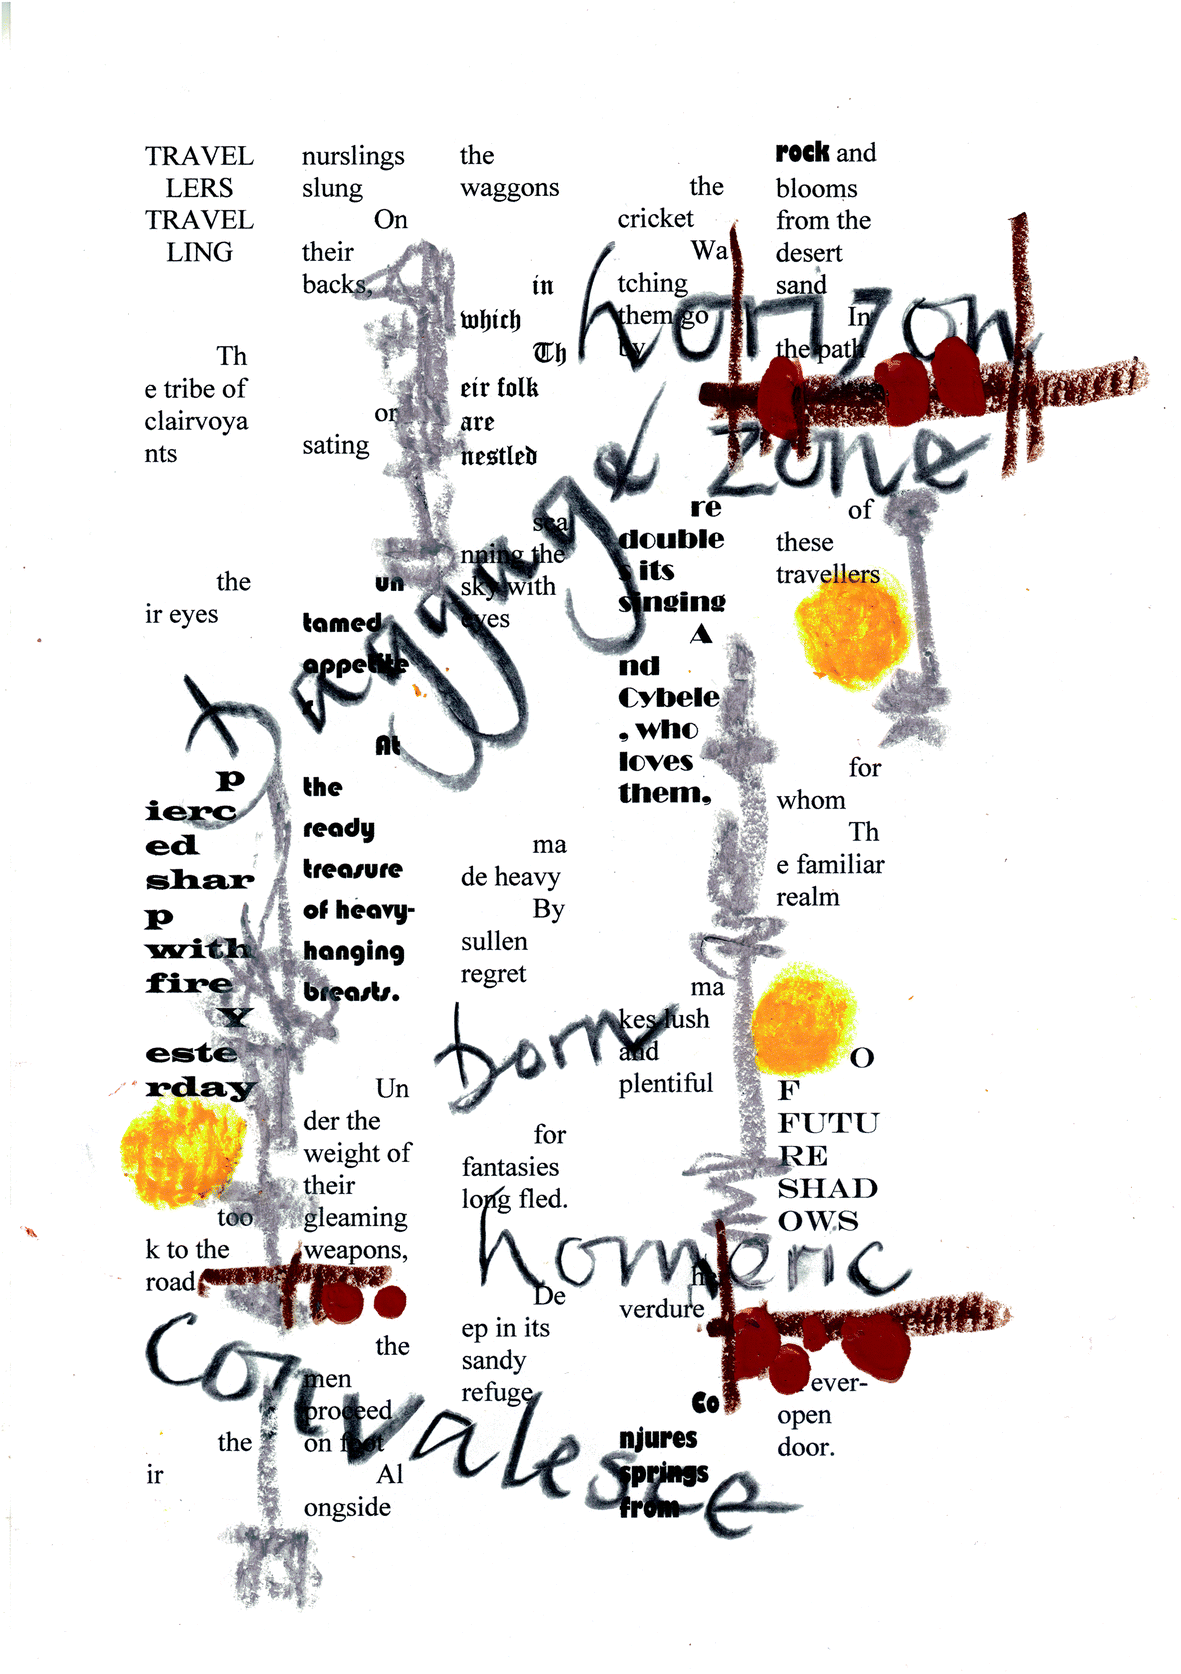 TRAVEL
LERS
TRAVEL
LING
Th
e tribe of
clairvoya
nts
the
ir eyes
p
ierc
ed
shar
p
with
fire
Y
este
rday
too
k to the
road
the
ir
nurslings
slung
On
their
backs,
or
sating
un
tamed
appetite
At
the
ready
treasure
of heavy-
hanging
breasts.
Un
der the
weight of
their
gleaming
weapons,
the
men
proceed
on foot
Al
ongside
the
waggons
in
which
Th
eir folk
are
nestled
sca
nning the
sky with
eyes
ma
de heavy
By
sullen
regret
for
fantasies
long fled.
De
ep in its
sandy
refuge
the
cricket
Wa
tching
them go
by
re
double
s its
singing
A
nd
Cybele
, who
loves
them,
ma
kes lush
and
plentiful
h
verdure
Co
njures
springs
from
rock and
blooms
from the
desert
sand
In
the path
of
these
travellers
for
whom
Th
e familiar
realm
O
F
FUTU
RE
SHAD
OWS
ever-
open
door.
horizon
zone
born
homeric
convalesce